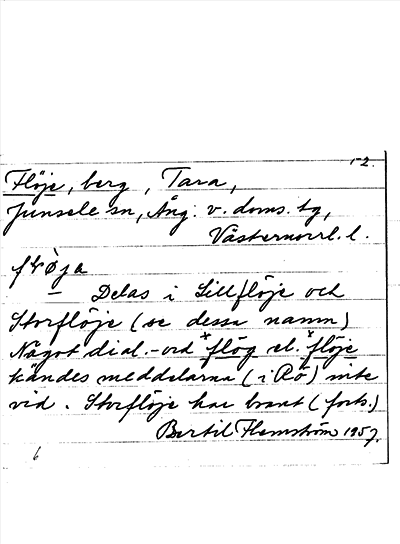 1-2.
Flöje, berg, Tara,
Junsele sn, Ång. v. doms. tg,
Västernorrl. l.
Delas i Lillflöje och
Storflöje (se dessa namn)
Något dial.-ord *flög el. *flöje
kändes meddelarna (i Rö) inte
vid. Storflöje har brant (forts.)
Bertil Flemström 1957.
6